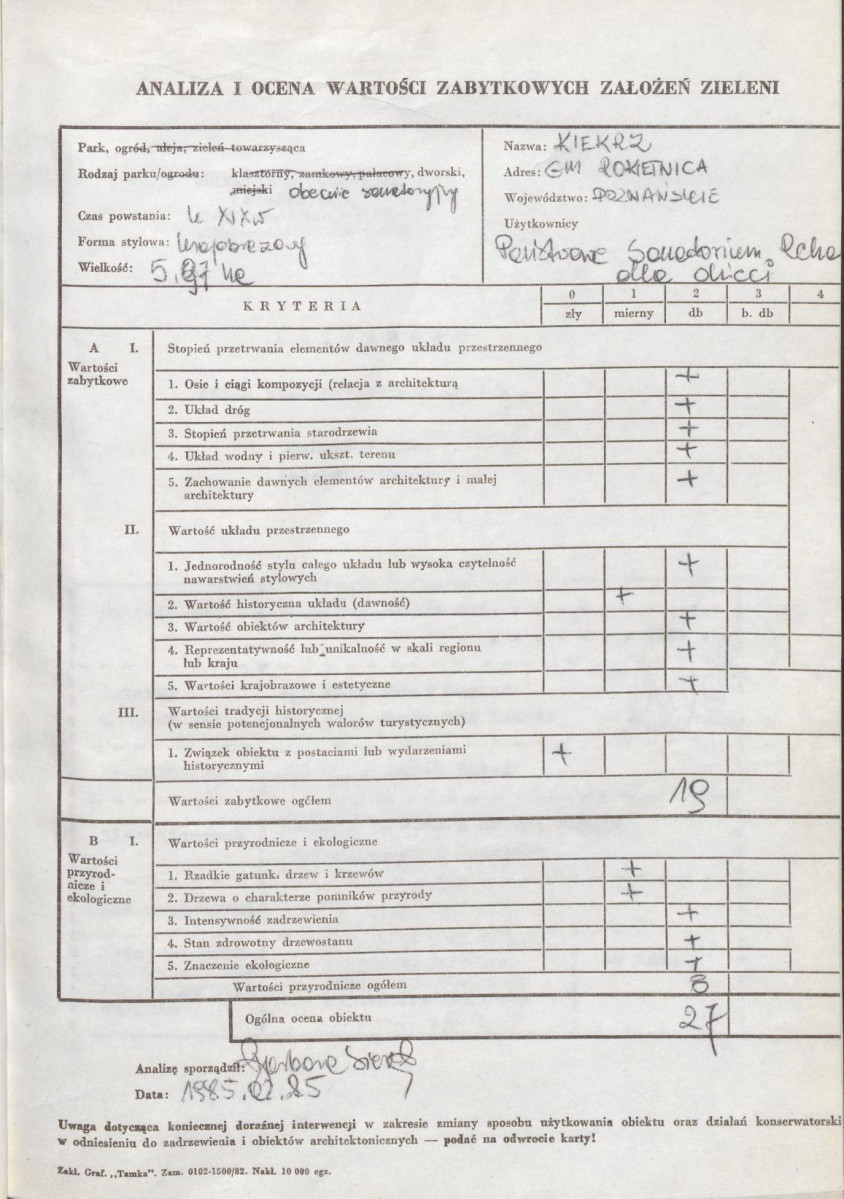 ANALIZA I OCENA WARTOŚCI ZABYTKOWYCH ZAŁOŻEŃ ZIELENI
Park, ogród, aleja, zieleń towarzysząca
Rodzaj parku/ogrodu: klasztorny, zamkowy, pałacowy, dworski,
miejski obecnie sanatoryjny
Czas powstania: k XIX w
Forma stylowa: krajobrazowy
Wielkość: 5,97 ha
Nazwa: KIEKRZ
Adres: GM ROKIETNICA
Województwo: POZNAŃSKIE
Użytkownicy
Państwowe Sanatorium Reha
dla dzieci
KRYTERIA
0 1 2 3 4
zły mierny db b. db
A I. Stopień przetrwania elementów dawnego układu przestrzennego
Wartości
zabytkowe
1. Osie i ciągi kompozycji (relacja z architekturą +
2. Układ dróg +
3. Stopień przetrwania starodrzewia +
4. Układ wodny i pierw. ukszt. terenu +
5. Zachowanie dawnych elementów architektury i małej +
architektury
II. Wartość układu przestrzennego
1. Jednorodność stylu całego układu lub wysoka czytelność +
nawarstwień stylowych
2. Wartość historyczna układu (dawność) +
3. Wartość obiektów architektury +
4. Reprezentatywność lub unikalność w skali regionu +
lub kraju
5. Wartości krajobrazowe i estetyczne +
III. Wartości tradycji historycznej
(w sensie potencjonalnych walorów turystycznych)
1. Związek obiektu z postaciami lub wydarzeniami +
historycznymi
Wartości zabytkowe ogółem 19
B I. Wartości przyrodnicze i ekologiczne
Wartości
przyrod-
nicze i
ekologiczne
1. Rzadkie gatunki drzew i krzewów +
2. Drzewa o charakterze pomników przyrody +
3. Intensywność zadrzewienia +
4. Stan zdrowotny drzewostanu +
5. Znaczenie ekologiczne +
Wartości przyrodnicze ogółem 8
Ogólna ocena obiektu 27
Analizę sporządził: Barbara
Data: 1985.02.25
Uwaga dotycząca koniecznej doraźnej interwencji w zakresie zmiany sposobu użytkowania obiektu oraz działań konserwatorski
w odniesieniu do zadrzewienia i obiektów architektonicznych — podać na odwrocie karty!
Zakł. Graf. „Tamka". Zam. 0102-1500/82. Nakł. 10 000 egz.